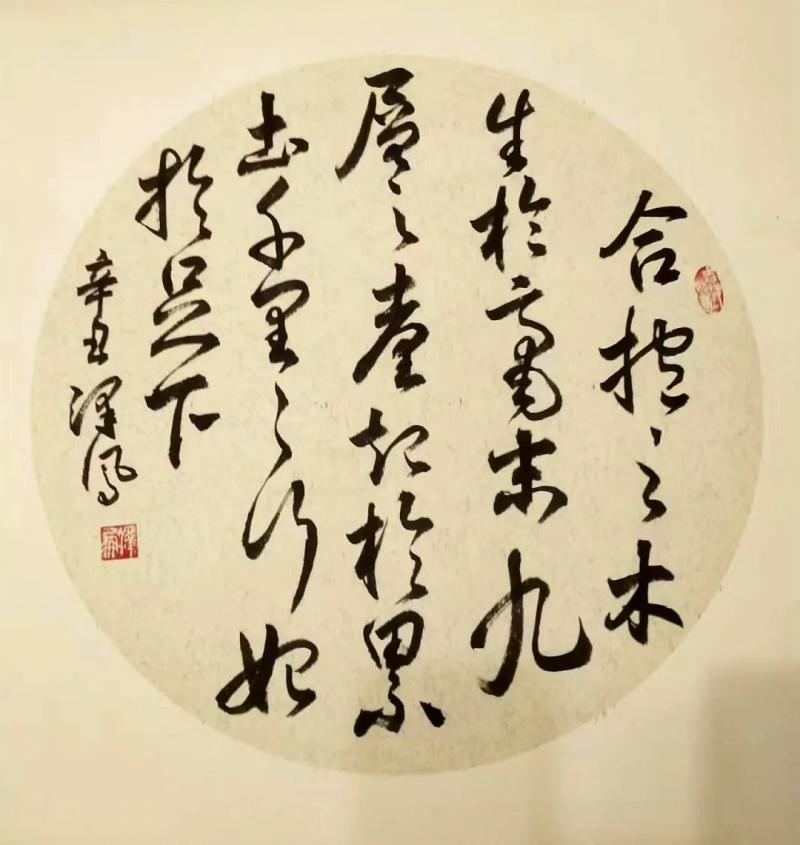 合抱之木
生於毫末九
層之臺起於累
土千里之行始
於足下
辛丑澤鳳